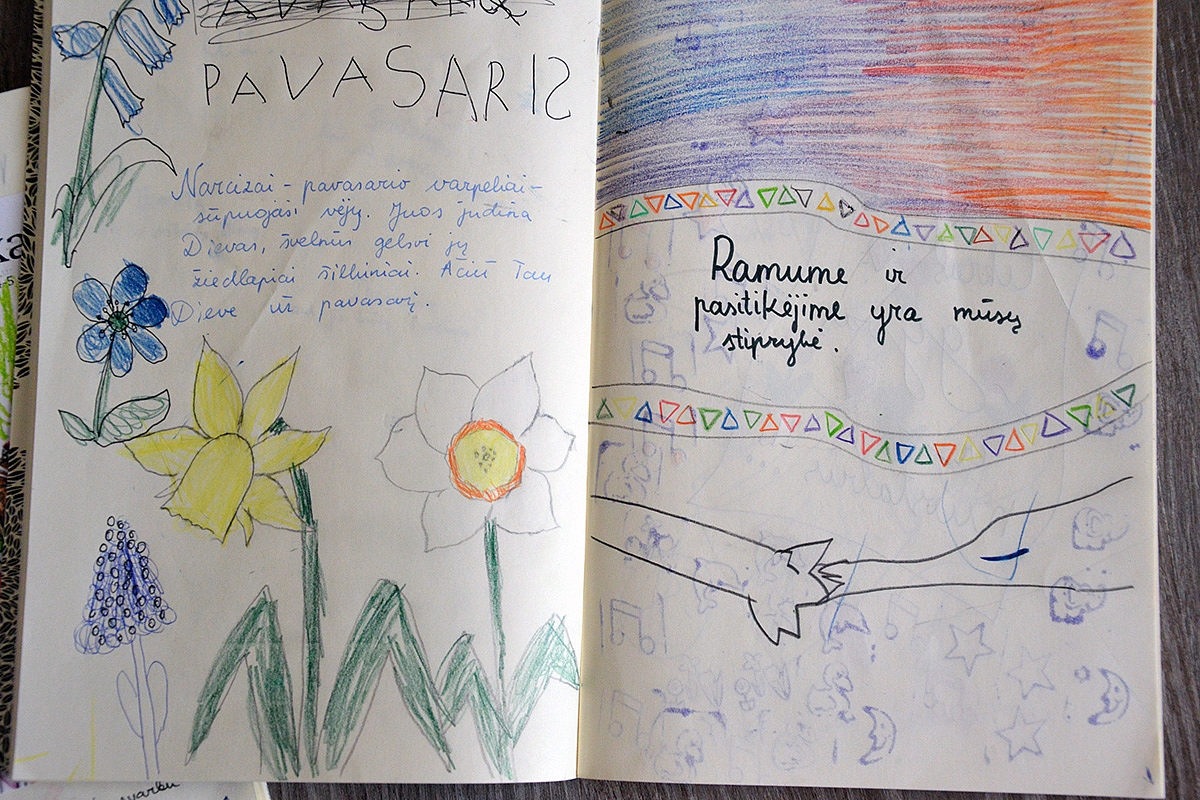 PAVASARIS
Narcizai - pavasario varpeliai -
sūpuojasi vėjy. Juos judina
Dievas, švelnūs gelsvi jų
žiedlapiai šilkiniai. Ačiū Tau
Dieve už pavasarį.
Ramume ir
pasitikėjime yra mūsų
stiprybė.